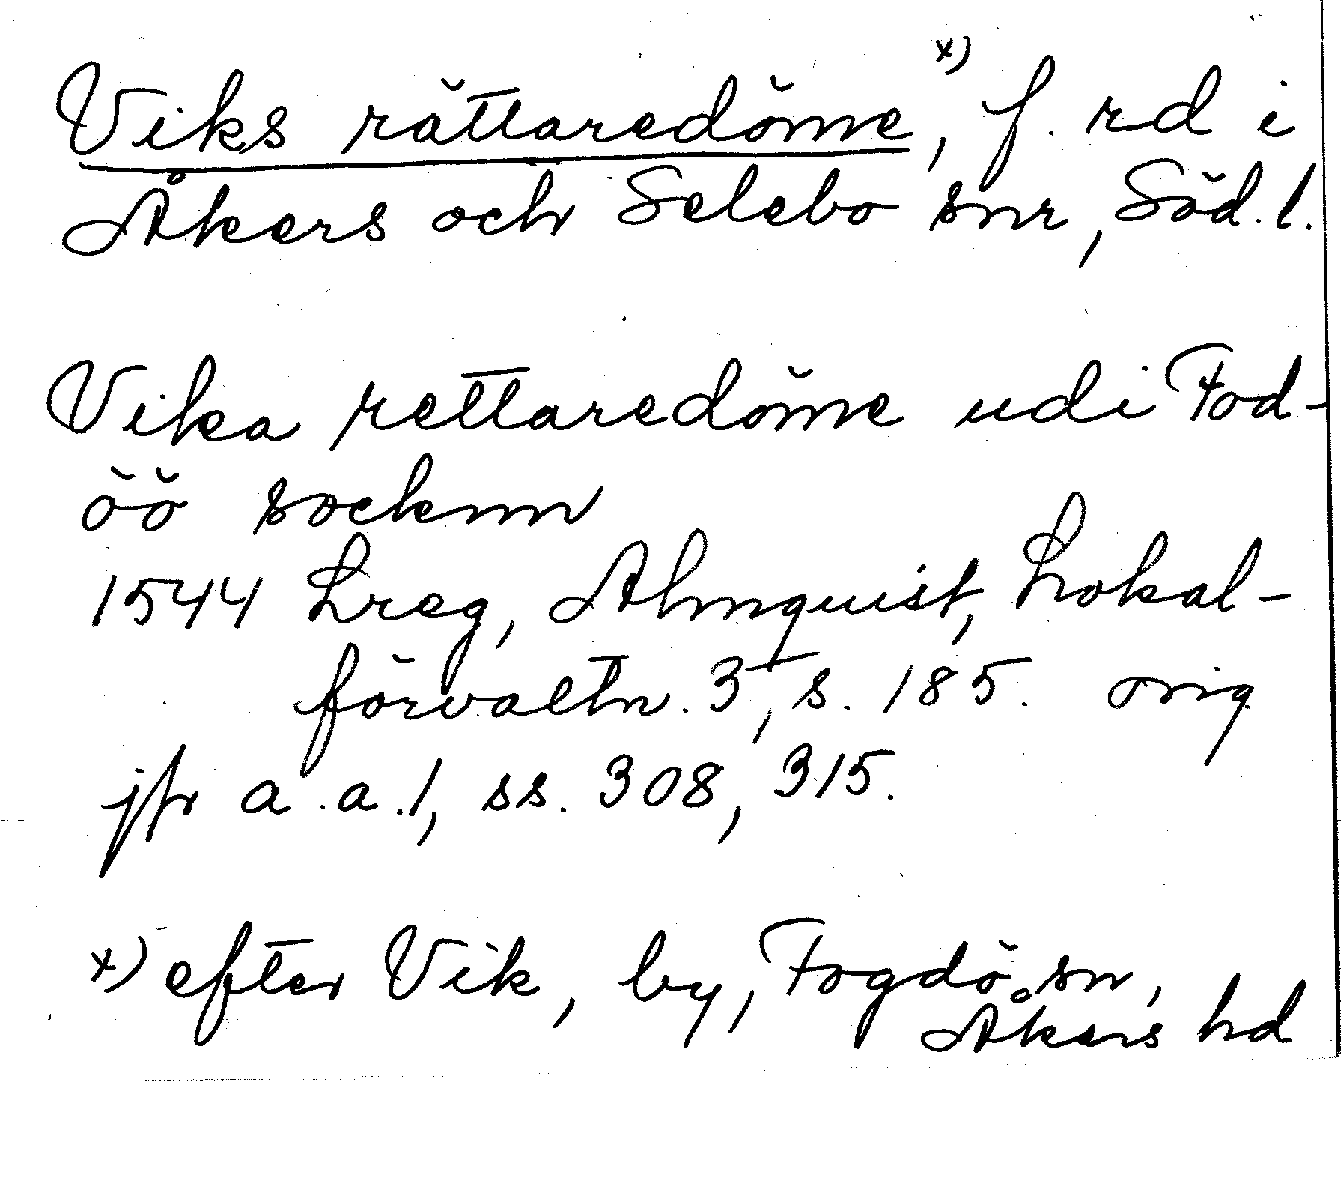 Viks rättaredöme, x) f. rd i
Åkers och Selebo snr, Söd. l.
Vika rettaredöme udi Fod-
öö socknn
1544 Lreg, Almquist, Lokal-
förvaltn. 3, s. 185. orig
jfr a.a. 1, ss. 308, 315.
x) efter Vik, by, Fogdö sn,
Åkers hd